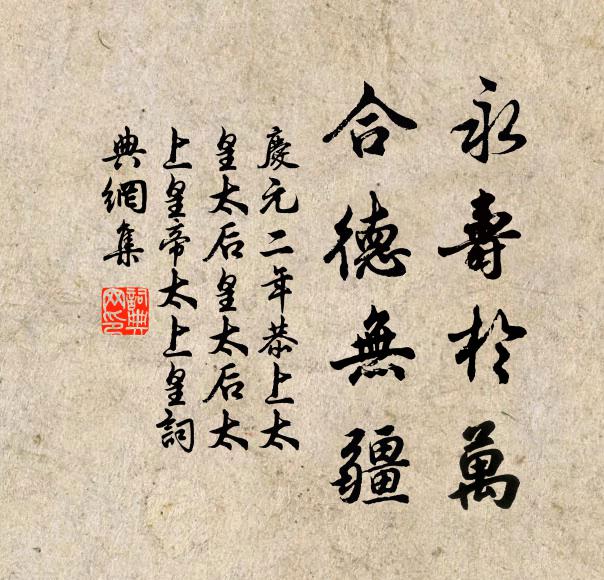 永壽於萬
合德無疆
慶元二年恭上太
皇太后皇太后太
上皇帝太上皇詞
典網集
詞典網印